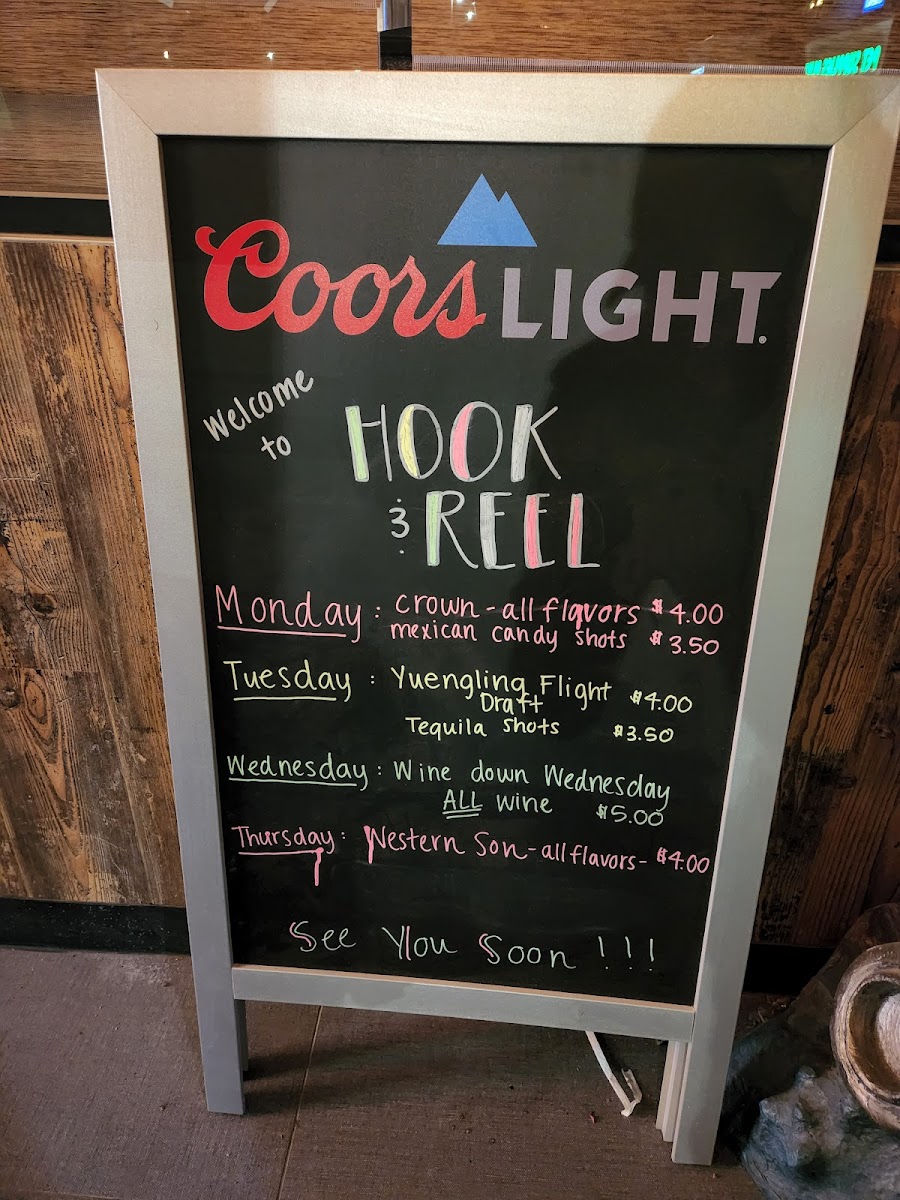 Coors LIGHT®
Welcome
to
HOOK
& REEL
Monday: crown - all flavors $4.00
mexican candy shots $3.50
Tuesday: Yuengling Flight $4.00
Draft
Tequila shots $3.50
Wednesday: Wine down Wednesday
ALL wine $5.00
Thursday: Western Son - all flavors - $4.00
See You Soon!!!